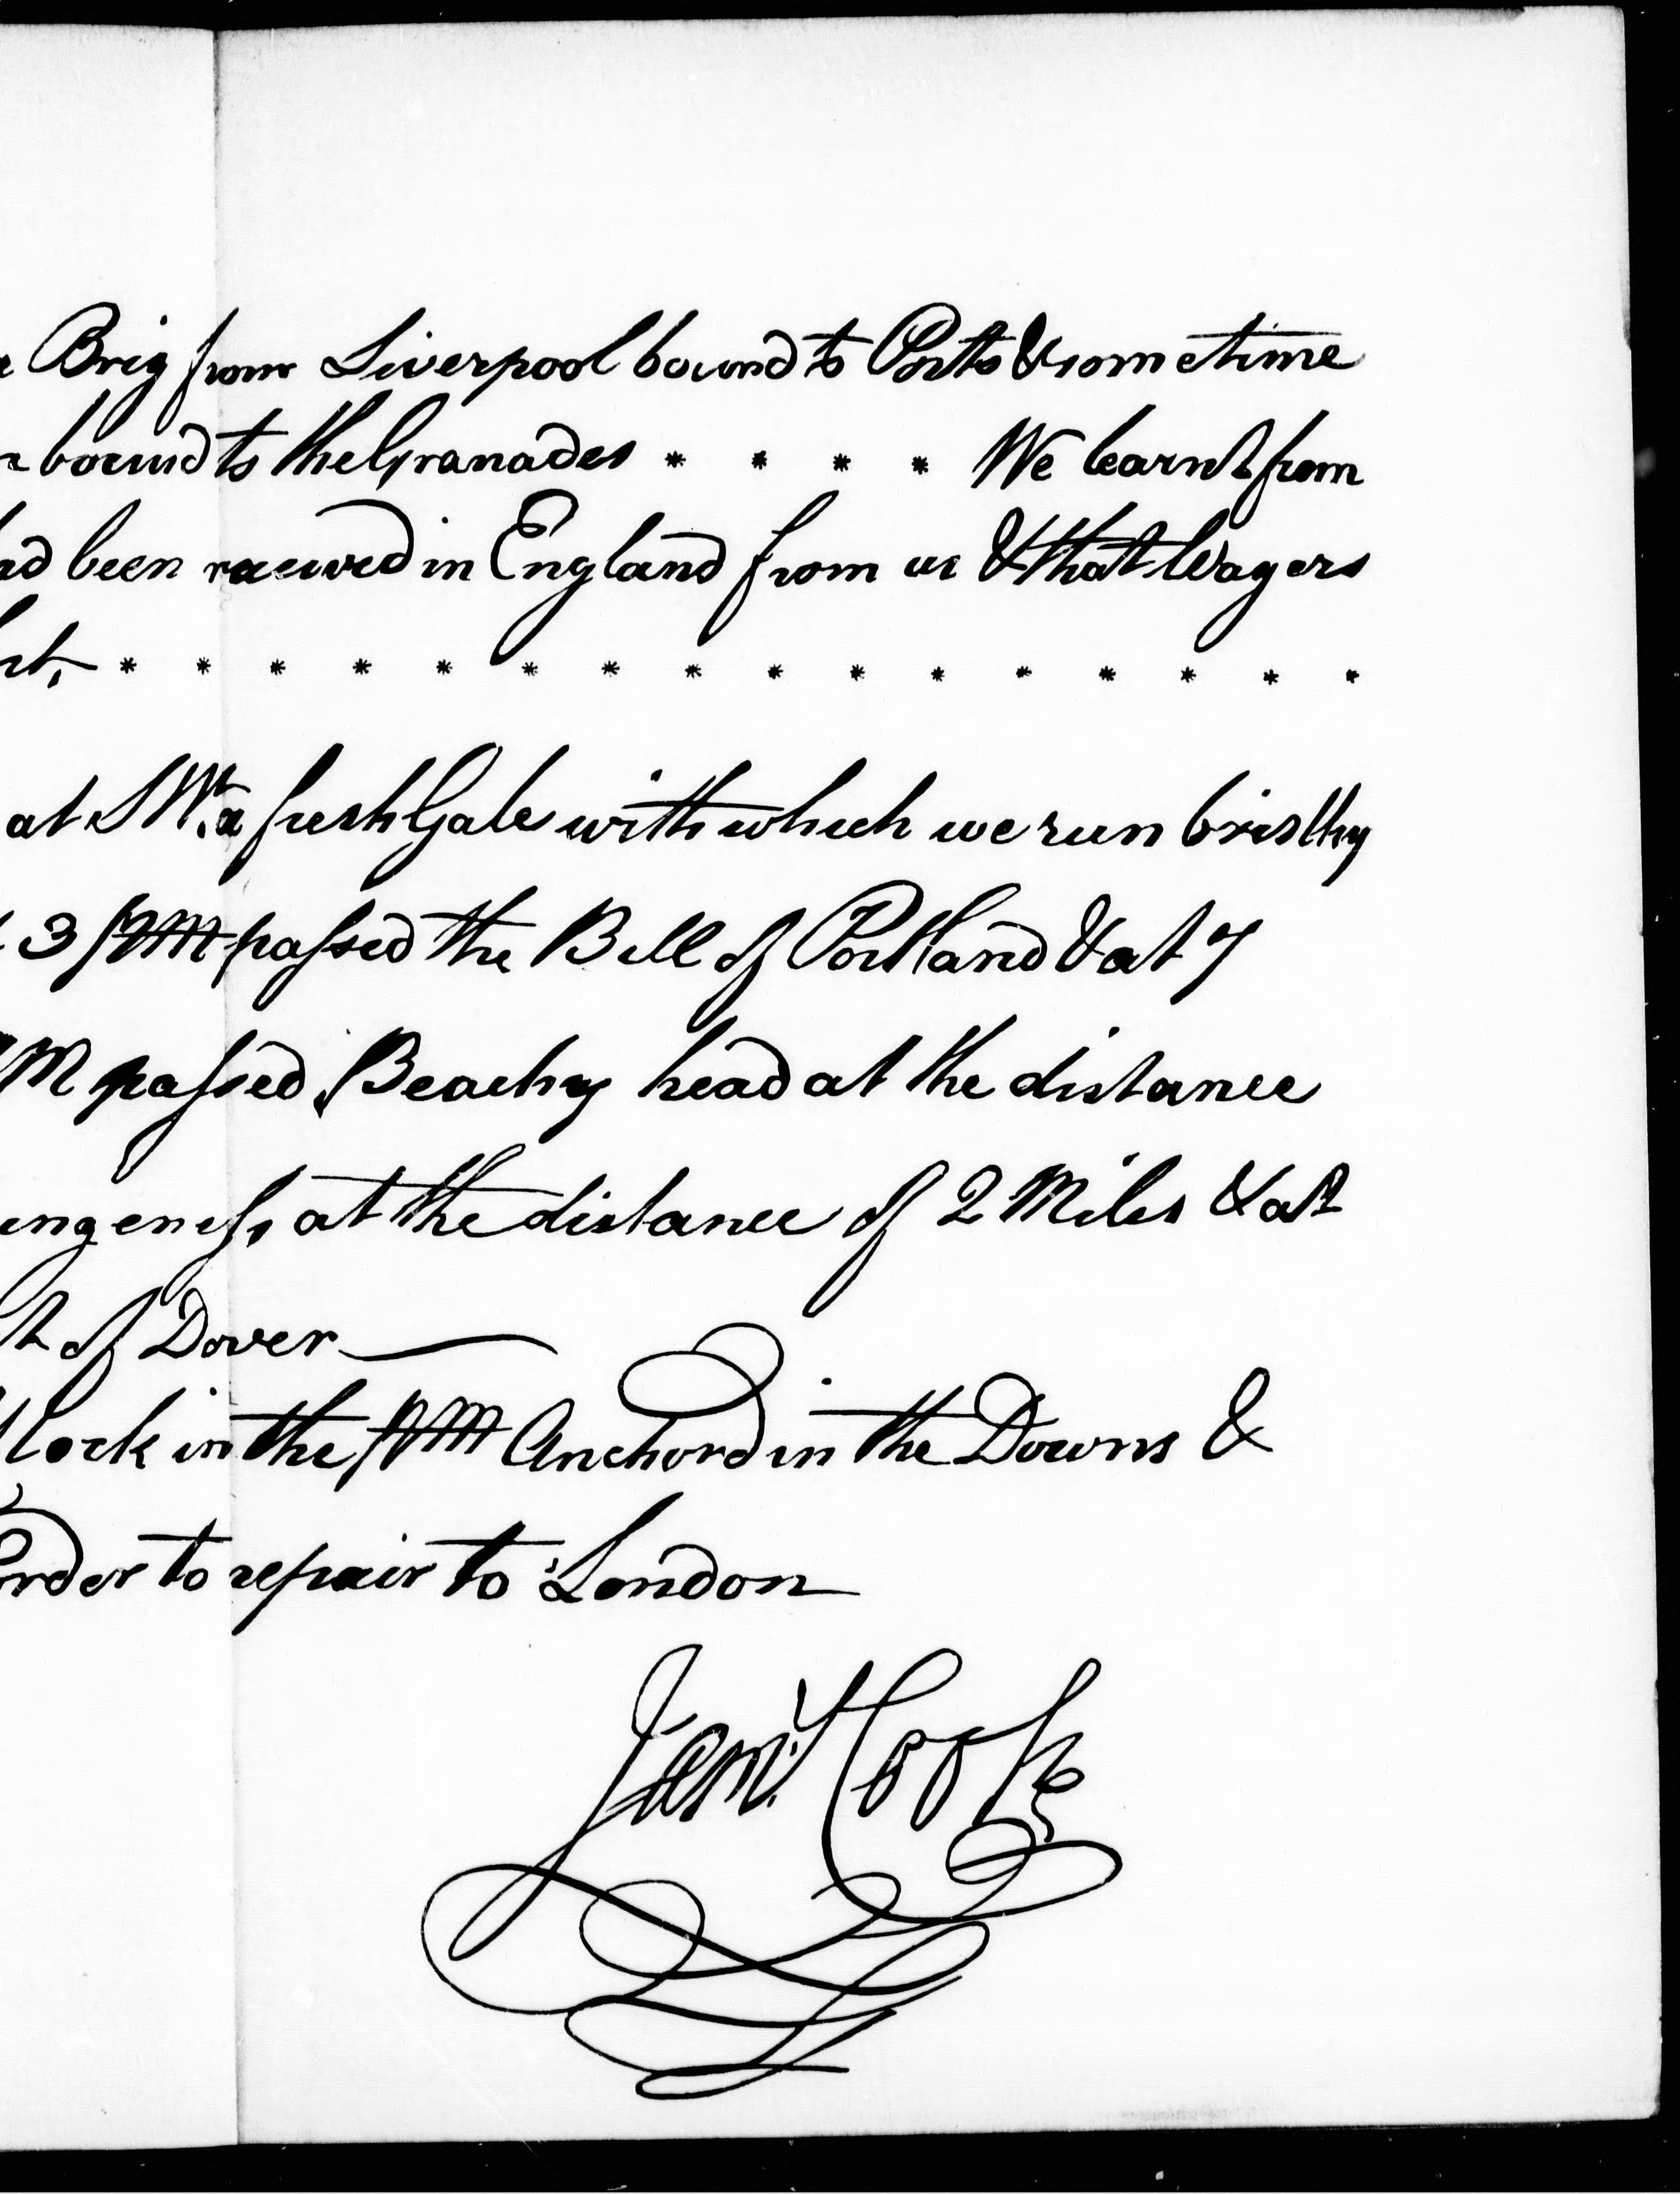 Brig from Liverpool bound to Porto & sometime
bound to the Granades * * * * We learnt from
been received in England from us & that Wagers
* * * * * * * * * * * * * * * *
at SWt. a fresh Gale with which we run briskly
3 PM passed the Bill of Portland & at 7
M passed Beachy head at the distance
engeness, at the distance of 2 Miles & at
of Dover
lock in the PM Anchord in the Downs &
order to repair to London
Jams. Cook